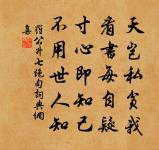 天豈私貧我
看書每自疑
寸心即知己
不用世人知
羅公升七絕句詞典網